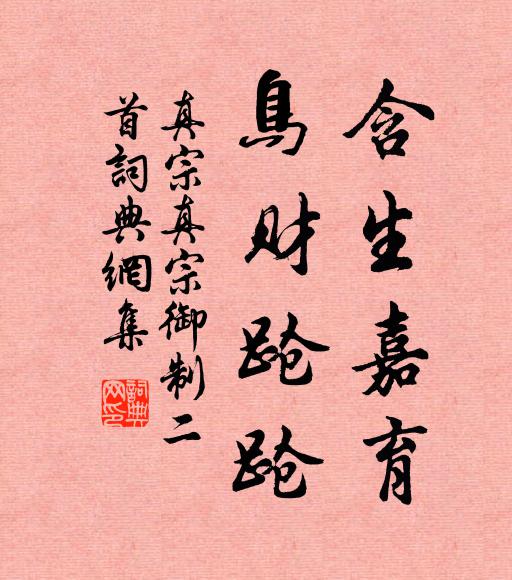 含生嘉育
鳥財跄跄
真宗真宗御制二
首詞典網集
詞典网印